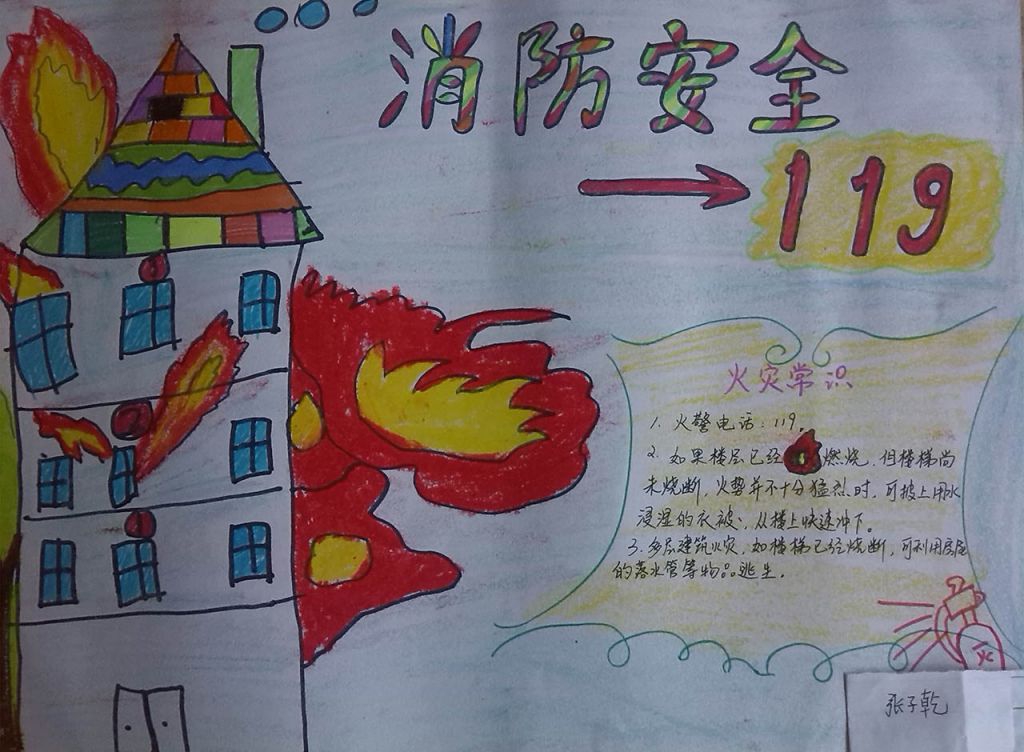 消防安全
119
火灾常识
1. 火警电话：119。
2. 如果楼层已经燃烧，但楼梯尚
未烧断，火势并不十分猛烈时，可披上用水
浸湿的衣被，从楼上快速冲下。
3. 多层建筑火灾，如楼梯已经烧断，可利用房屋
的落水管等物品逃生。
火
张子乾